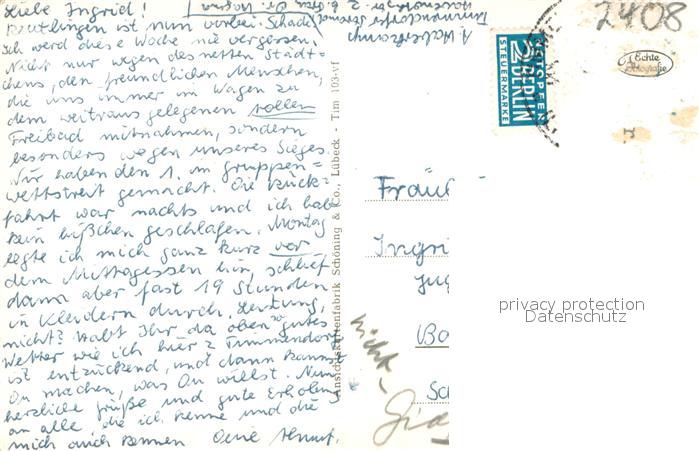 Liebe Ingrid!
Reutlingen ist nun vorbei. Schade!
Ich werd diese Woche nie vergessen.
Nicht nur wegen des netten Städt=
chens, den freundlichen Menschen,
die uns immer im Wagen zu
dem weitraus gelegenen vollen
Freibad mitnahmen, sondern
besonders wegen unseres Sieges.
Wir haben den 1. im Gruppen=
wettstreit gemacht. Die Rück=
fahrt war nachts und ich hab
kein bißchen geschlafen. Montag
legte ich mich ganz kurz vor
dem Mittagessen hin, schlief
dann aber fast 19 Stunden
in Kleidern durch. Leistung,
nicht? Habt Ihr da oben so gutes
Wetter wie ich hier? Timmendorf
ist entzückend, und dann kannst
Du machen, was Du willst. Nun
herzliche Grüße und gute Erholung
an alle die ich kenne und die
mich auch kennen Deine
Timmendorfer Strand
Ansichtskartenfabrik Schöning & Co., Lübeck - Tim 103-vf
NOTOPFER
2 BERLIN
STEUERMARKE
2408
Echte
Fotografie
Fräul
Ingri
Jug
Ba
Sc
nicht
privacy protection
Datenschutz